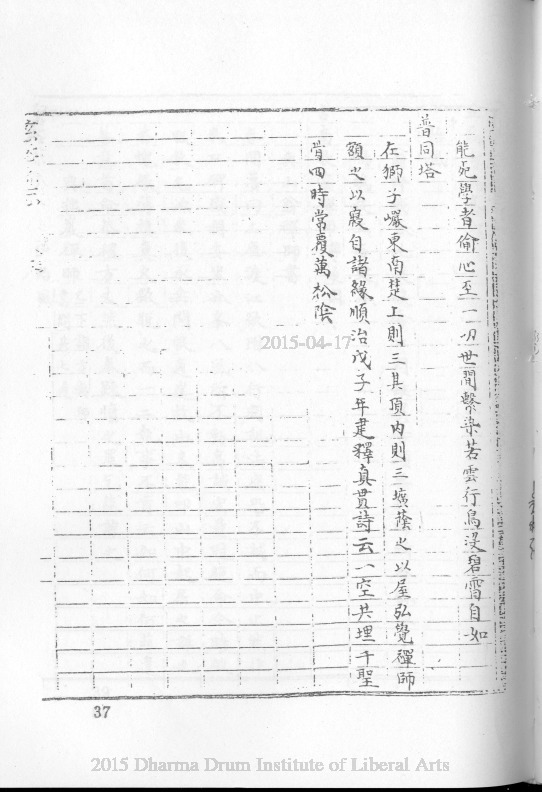 能死學者偷心至一切世間繫染若雲行鳥沒碧霄自如
普同塔
在獅子巖東南楚上則三其項內則三壙蔭之以屋弘覺禪師
額之以寂自諸緣順治戊子年建釋真貫詩云一空共埋千聖
骨四時常覆萬松陰
2015-04-17
37
2015 Dharma Drum Institute of Liberal Arts